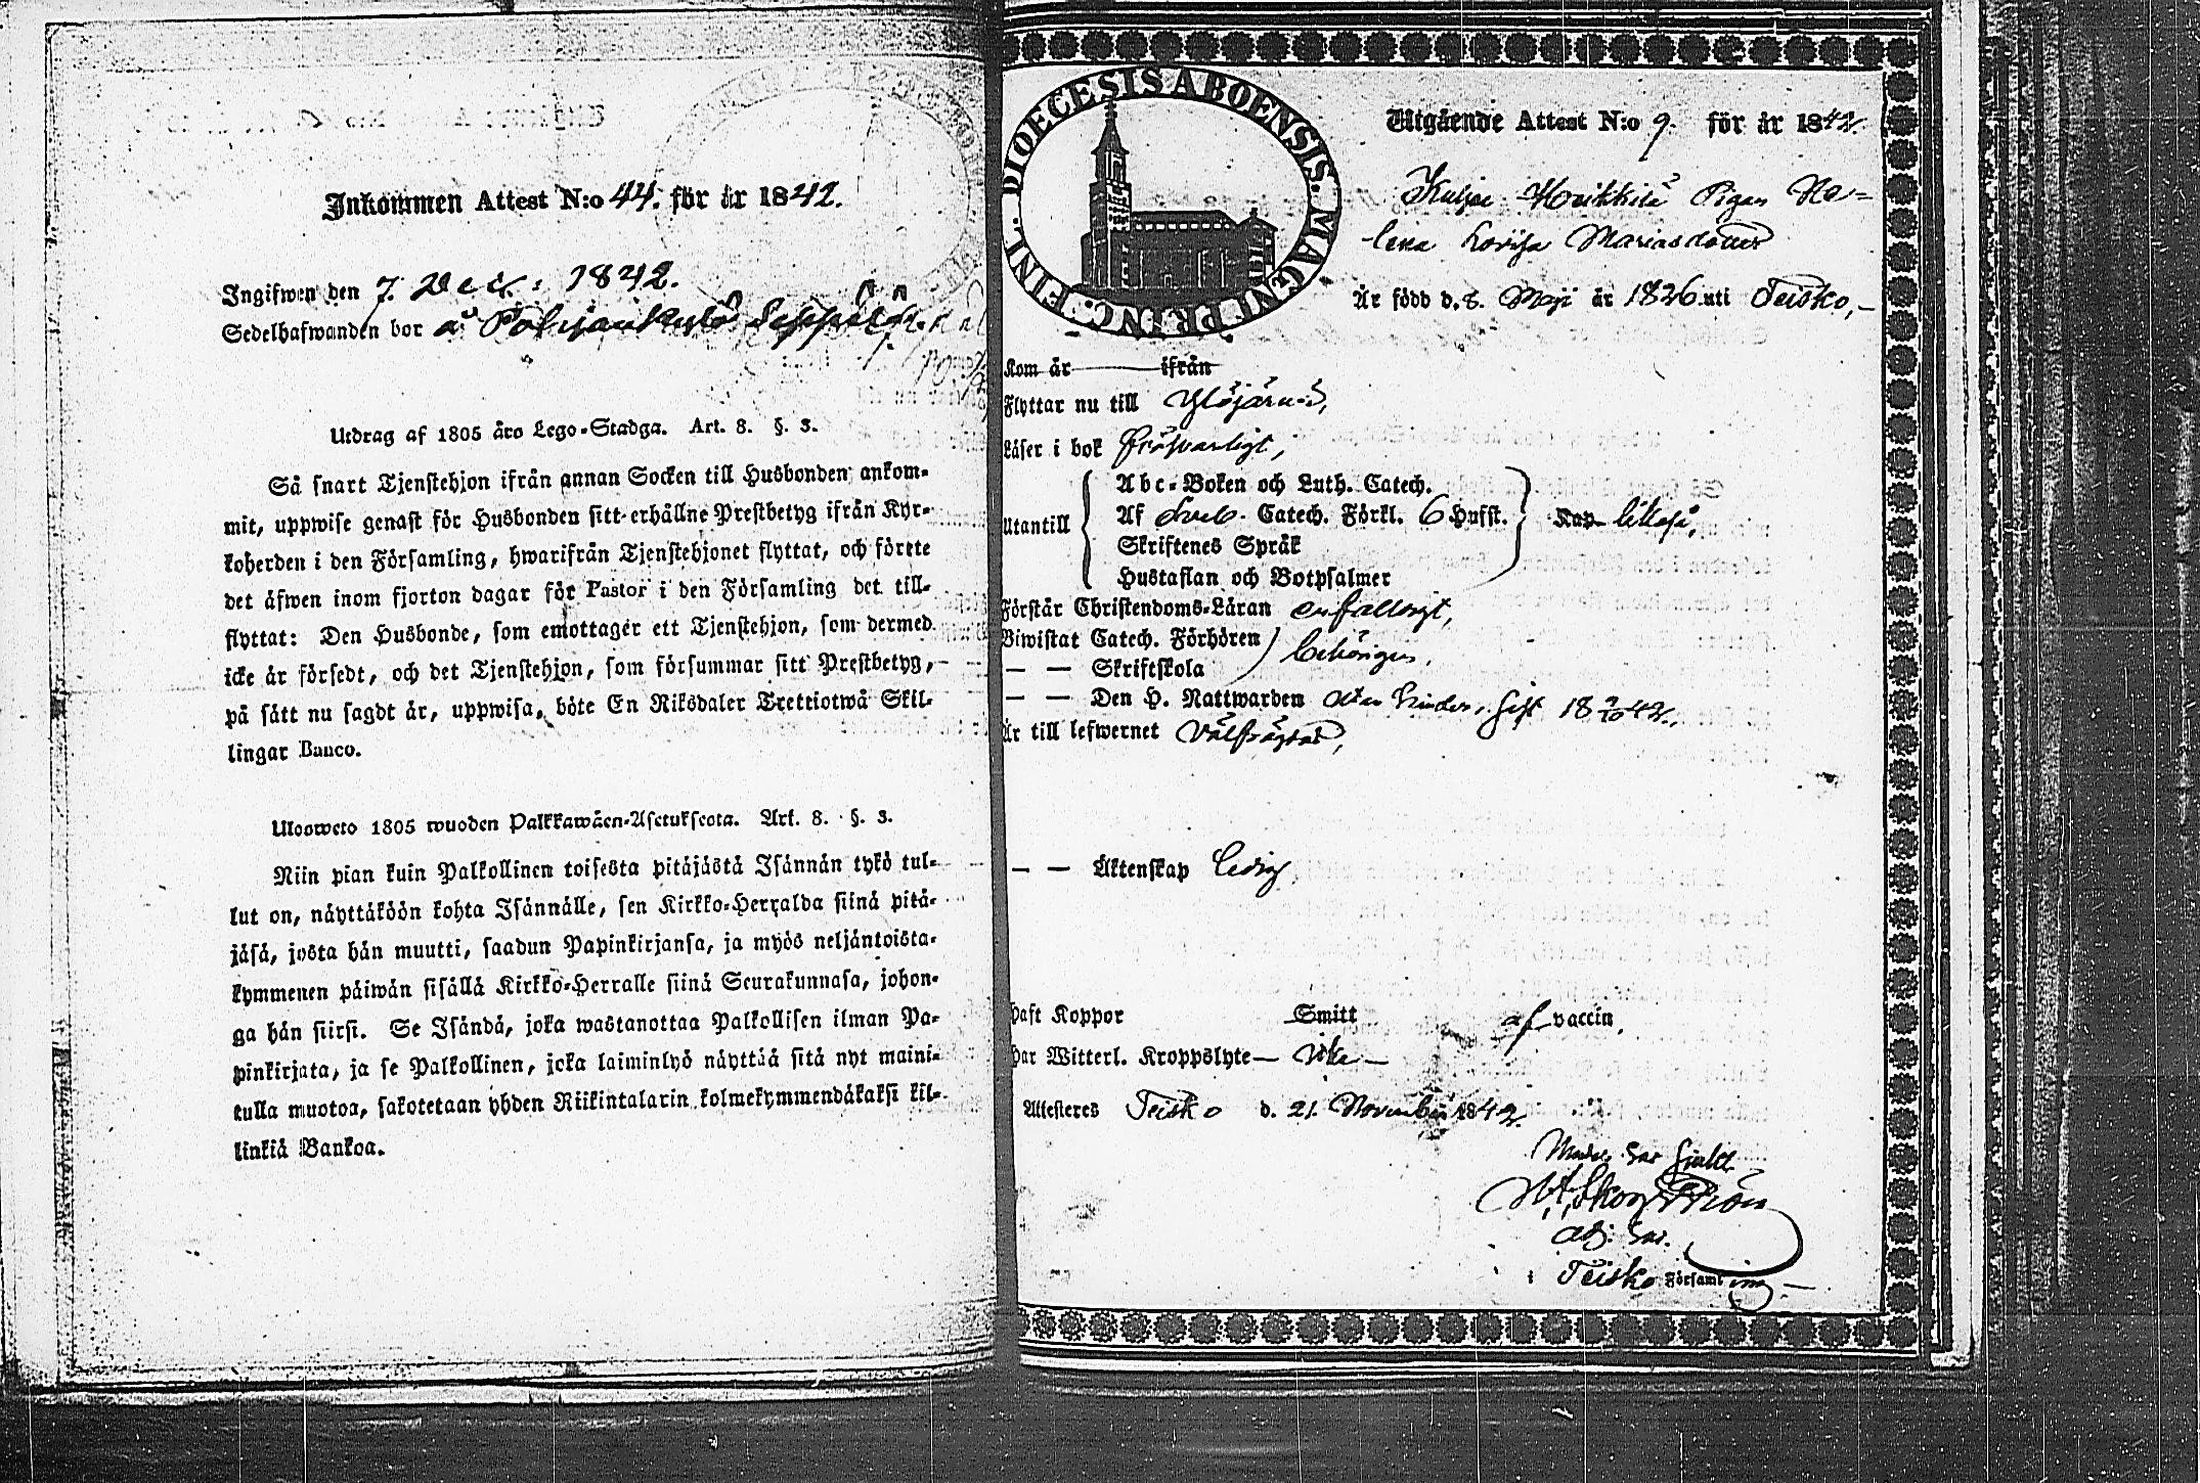 Inkommen Attest N:o 44. för år 1842.
Ingifwen den 7. Dec. 1842.
Sedelhafwanden bor å Pohjankylä Seppälä
Utdrag af 1805 års Lego-Stadga. Art. 8. §. 3.
Så snart Tjenstehjon ifrån annan Socken till Husbonden ankom-
mit, uppwise genast för Husbonden sitt erhållne Prestbetyg ifrån Kyr-
koherden i den Församling, hwarifrån Tjenstehjonet flyttat, och förete
det äfwen inom fjorton dagar för Pastor i den Församling det till-
flyttat: Den Husbonde, som emottager ett Tjenstehjon, som dermed
icke är försedt, och det Tjenstehjon, som försummar sitt Prestbetyg,
på sätt nu sagdt är, uppwisa, böte En Riksdaler Trettiotwå Skil-
lingar Banco.
Ulosweto 1805 wuoden Palkkawäen-Asetuksesta. Art. 8. §. 3.
Niin pian kuin Palkollinen toisesta pitäjästä Isännän tykö tul-
lut on, näyttäköön kohta Isännälle, sen Kirkko-Herralda siinä pitä-
jäsä, josta hän muutti, saadun Papinkirjansa, ja myös neljäntoista-
kymmenen päiwän sisällä Kirkko-Herralle siinä Seurakunnasa, johon-
ga hän siirsi. Se Isändä, joka wastanottaa Palkollisen ilman Pa-
pinkirjata, ja se Palkollinen, joka laiminlyö näyttää sitä nyt maini-
tulla muotoa, sakotetaan yhden Riikintalarin kolmekymmendäkaksi kil-
linkiä Bankoa.
FINL. DIOECESIS ABOENSIS. MAGNI PRINC.
Utgående Attest N:o 9. för år 1842.
Pigan He-
lena Lovisa Mariasdotter
Är född d. 8. Maji år 1826 uti Teisko,
Kom år ifrån
Flyttar nu till Ylöjärvi,
Läser i bok försvarligt,
Utantill
Abc-Boken och Luth. Catech.
Af Sveb. Catech. Förkl. 6 Hufst.
Skriftenes Språk
Hustaflan och Botpsalmer
Kan likaså,
Förstår Christendoms-Läran enfaldigt,
Biwistat Catech. Förhören
— — Skriftskola
behörigen,
— — Den H. Nattwarden utan hinder, sist 18 2/10 42.
Är till lefwernet välfrägdad,
— — Äktenskap ledig
Haft Koppor Smitt af vaccin,
Har Witterl. Kroppslyte — icke —
Attesteras Teisko d. 21. November 1842.
Adj. Sac.
i Teisko Församling